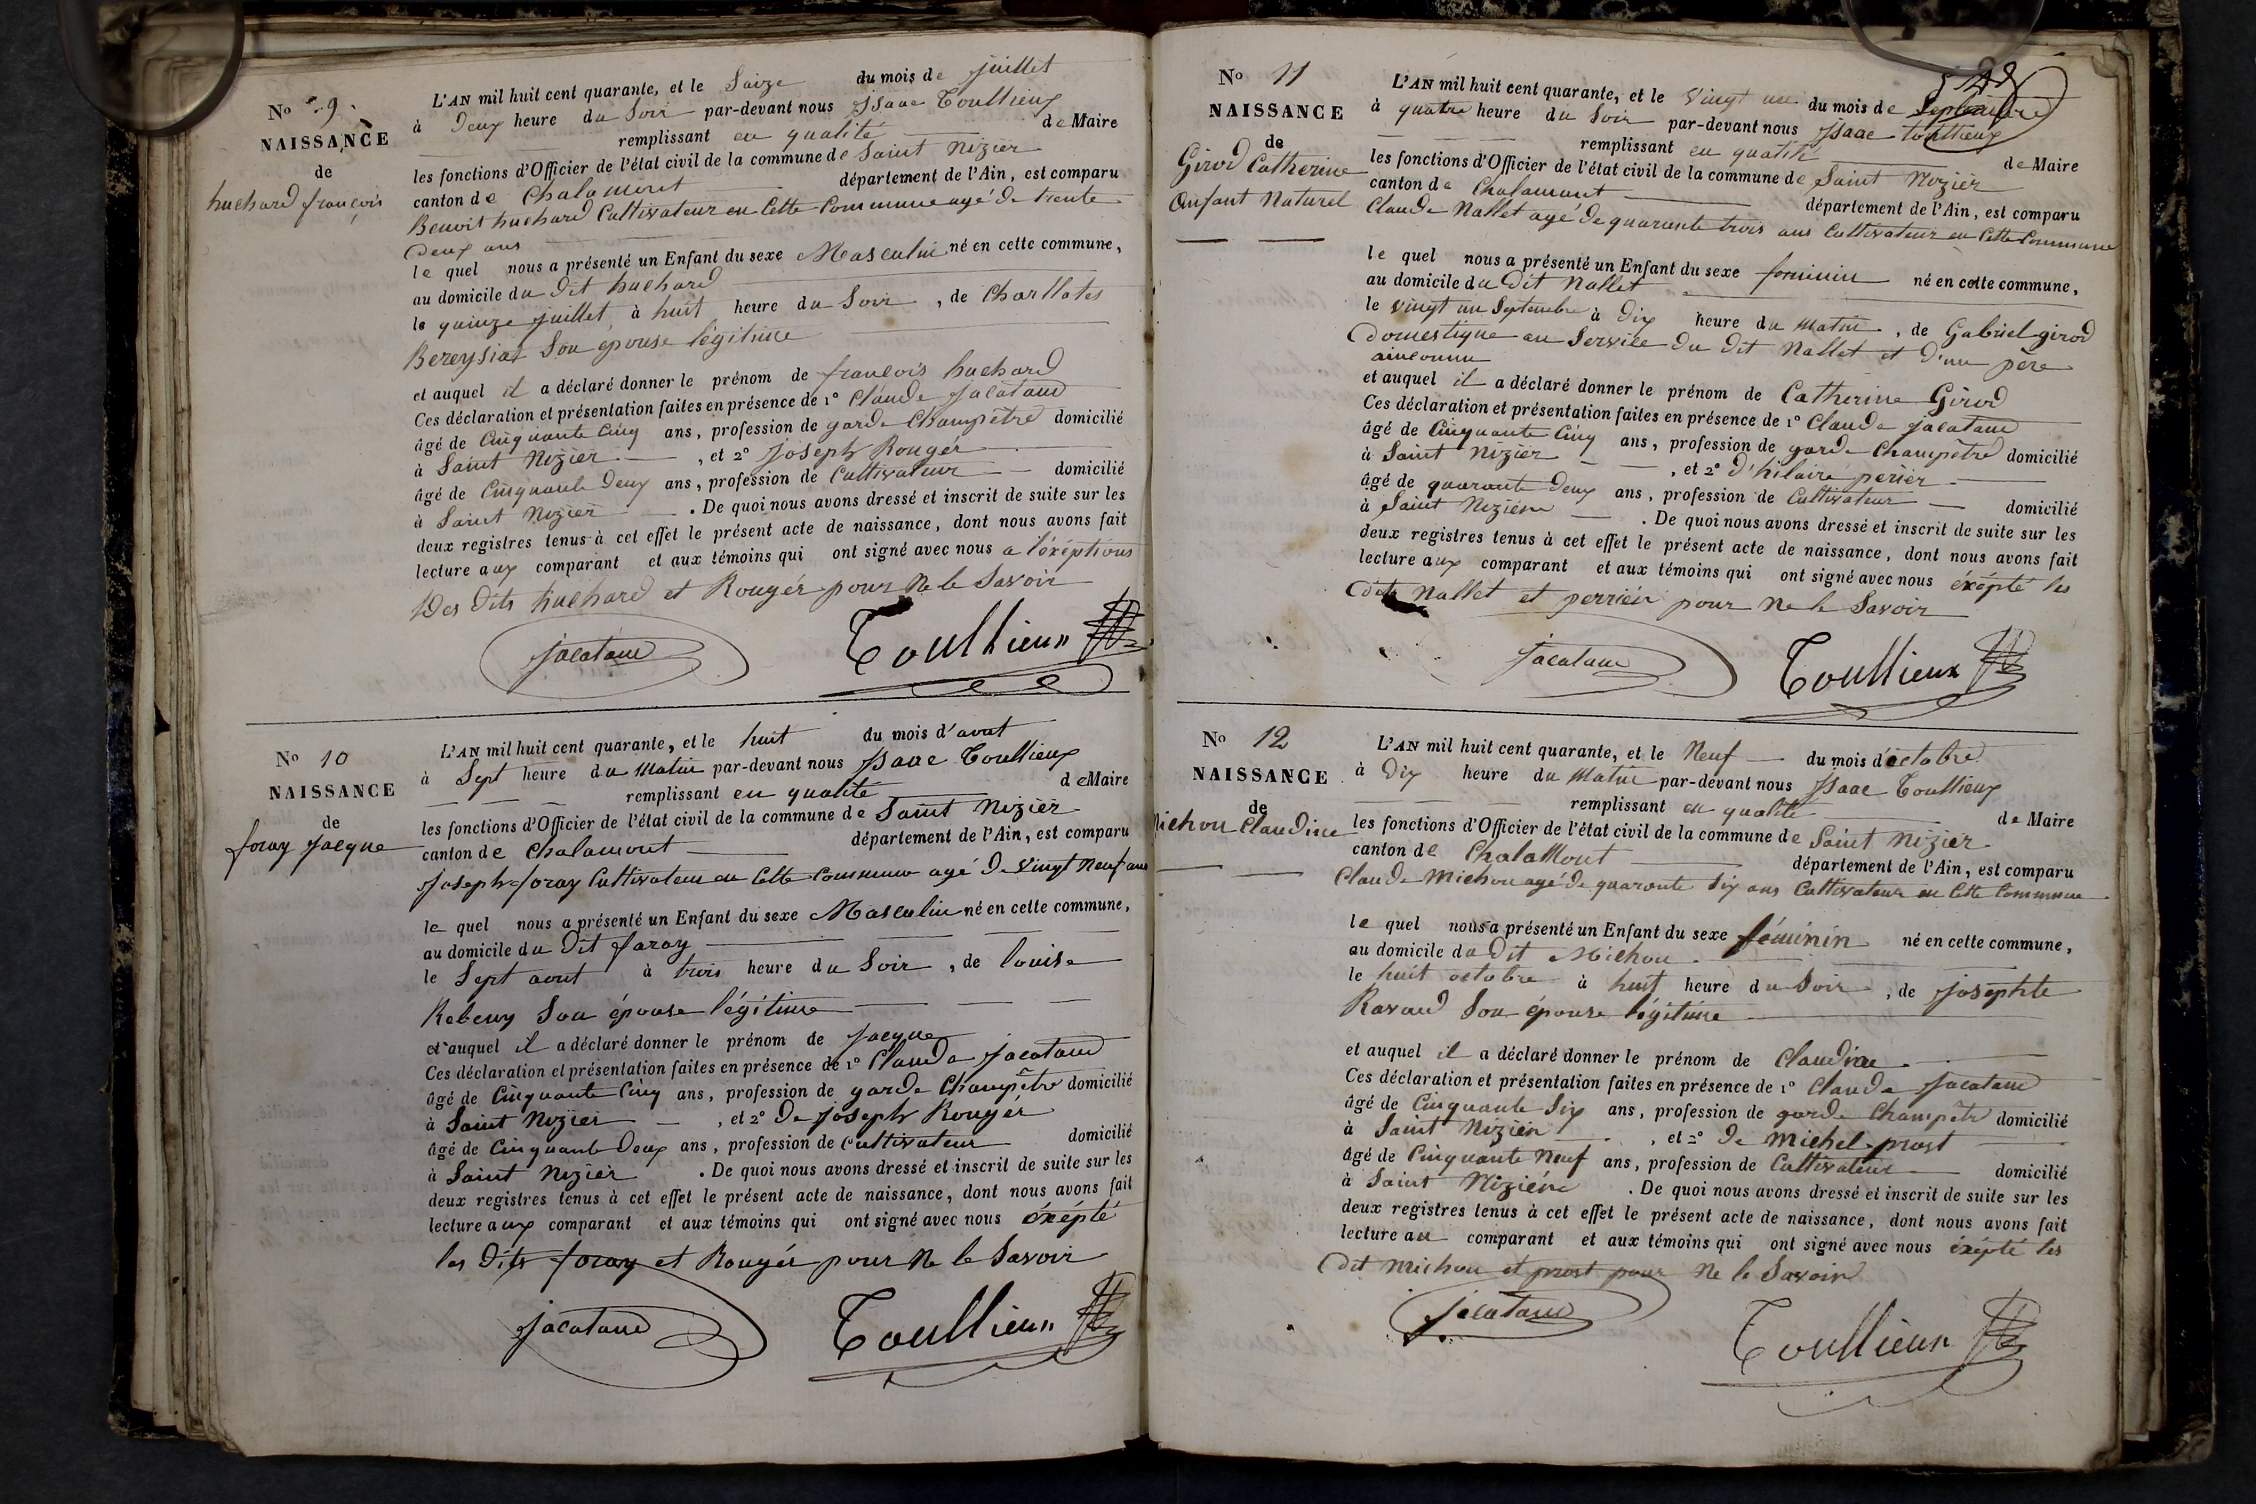 No 9.
NAISSANCE
de
huchard françois
L'AN mil huit cent quarante, et le Saize du mois de juillet
à Deux heure du Soir par-devant nous Isaac Toullieux
remplissant en qualité de Maire
les fonctions d'Officier de l'état civil de la commune de Saint Nizier
canton de Chalamont département de l'Ain, est comparu
Benoit huchard Cultivateur en Cette Commune agé de trente
Deux ans
le quel nous a présenté un Enfant du sexe Masculin né en cette commune,
au domicile du Dit huchard
le quinze juillet à huit heure du Soir, de Charllotes
Bereysiat Son épouse légitime
et auquel il a déclaré donner le prénom de françois huchard
Ces déclaration et présentation faites en présence de 1° Claude Jacataud
âgé de Cinquante Cinq ans, profession de garde Champêtre domicilié
à Saint Nizier, et 2° Joseph Rougér
âgé de Cinquante Deux ans, profession de Cultivateur domicilié
à Saint Nizier. De quoi nous avons dressé et inscrit de suite sur les
deux registres tenus à cet effet le présent acte de naissance, dont nous avons fait
lecture aux comparant et aux témoins qui ont signé avec nous a l'éxéptions
Des Dits huchard et Rougér pour Ne le Savoir
Jacataud Toullieux
No 10
NAISSANCE
de
foray Jacque
L'AN mil huit cent quarante, et le huit du mois d'avut
à Sept heure du Matin par-devant nous Isaac Toullieux
remplissant en qualité de Maire
les fonctions d'Officier de l'état civil de la commune de Saint Nizier
canton de Chalamont département de l'Ain, est comparu
Joseph foray Cultivateur en Cette Commune agé De Vingt Neuf ans
le quel nous a présenté un Enfant du sexe Masculin né en cette commune,
au domicile du Dit faray
le Sept aout à trois heure du Soir, de louise
Rebeuy Son épouse légitime
et auquel il a déclaré donner le prénom de Jacque
Ces déclaration et présentation faites en présence de 1° Claude Jacataud
âgé de Cinquante Cinq ans, profession de garde Champêtre domicilié
à Saint Nizier, et 2° De Joseph Rougér
âgé de Cinquante Deux ans, profession de Cultivateur domicilié
à Saint Nizier. De quoi nous avons dressé et inscrit de suite sur les
deux registres tenus à cet effet le présent acte de naissance, dont nous avons fait
lecture aux comparant et aux témoins qui ont signé avec nous éxépté
les Dits foray et Rougér pour Ne le Savoir
Jacataud Toullieux
No 11
NAISSANCE
de
Girod Catherine
Enfant Naturel
L'AN mil huit cent quarante, et le Vingt un du mois de Septembre
à quatre heure du Soir par-devant nous Isaac toullieux
remplissant en qualité de Maire
les fonctions d'Officier de l'état civil de la commune de Saint Nizier
canton de Chalamont département de l'Ain, est comparu
Claude Nallet agé de quarante trois ans Cultivateur en Cette Commune
le quel nous a présenté un Enfant du sexe feminin né en cette commune,
au domicile du Dit Nallet
le Vingt un Septembre à Dix heure du Matin, de Gabriel girod
Domestique au Service du dit Nallet et d'un père
ainconnu
et auquel il a déclaré donner le prénom de Catherine Girod
Ces déclaration et présentation faites en présence de 1° Claude Jacataud
âgé de Cinquante Cinq ans, profession de garde Champêtre domicilié
à Saint Nizier, et 2° d'hilaire périer
âgé de quarante Deux ans, profession de Cultivateur domicilié
à Saint Nizier. De quoi nous avons dressé et inscrit de suite sur les
deux registres tenus à cet effet le présent acte de naissance, dont nous avons fait
lecture aux comparant et aux témoins qui ont signé avec nous éxépté les
dits Nallet et perriér pour Ne le Savoir
Jacataud Toullieux
No 12
NAISSANCE
de
Michon Claudine
L'AN mil huit cent quarante, et le Neuf du mois d'octobre
à Dix heure du Matin par-devant nous Isaac Toullieux
remplissant en qualité de Maire
les fonctions d'Officier de l'état civil de la commune de Saint Nizier
canton de Chalamont département de l'Ain, est comparu
Claude Michon agé de quarante Six ans Cultivateur en Cette Commune
le quel nous a présenté un Enfant du sexe féminin né en cette commune,
au domicile du Dit Michon
le huit octobre à huit heure du Soir, de Josephte
Ravaud Son épouse légitime
et auquel il a déclaré donner le prénom de Claudine
Ces déclaration et présentation faites en présence de 1° Claude Jacataud
âgé de Cinquante Six ans, profession de garde Champêtre domicilié
à Saint Nizier, et 2° De Michel prost
âgé de Cinquante Neuf ans, profession de Cultivateur domicilié
à Saint Nizier. De quoi nous avons dressé et inscrit de suite sur les
deux registres tenus à cet effet le présent acte de naissance, dont nous avons fait
lecture au comparant et aux témoins qui ont signé avec nous éxépté les
Dit Michon et prost pour Ne le Savoir
Jacataud Toullieux